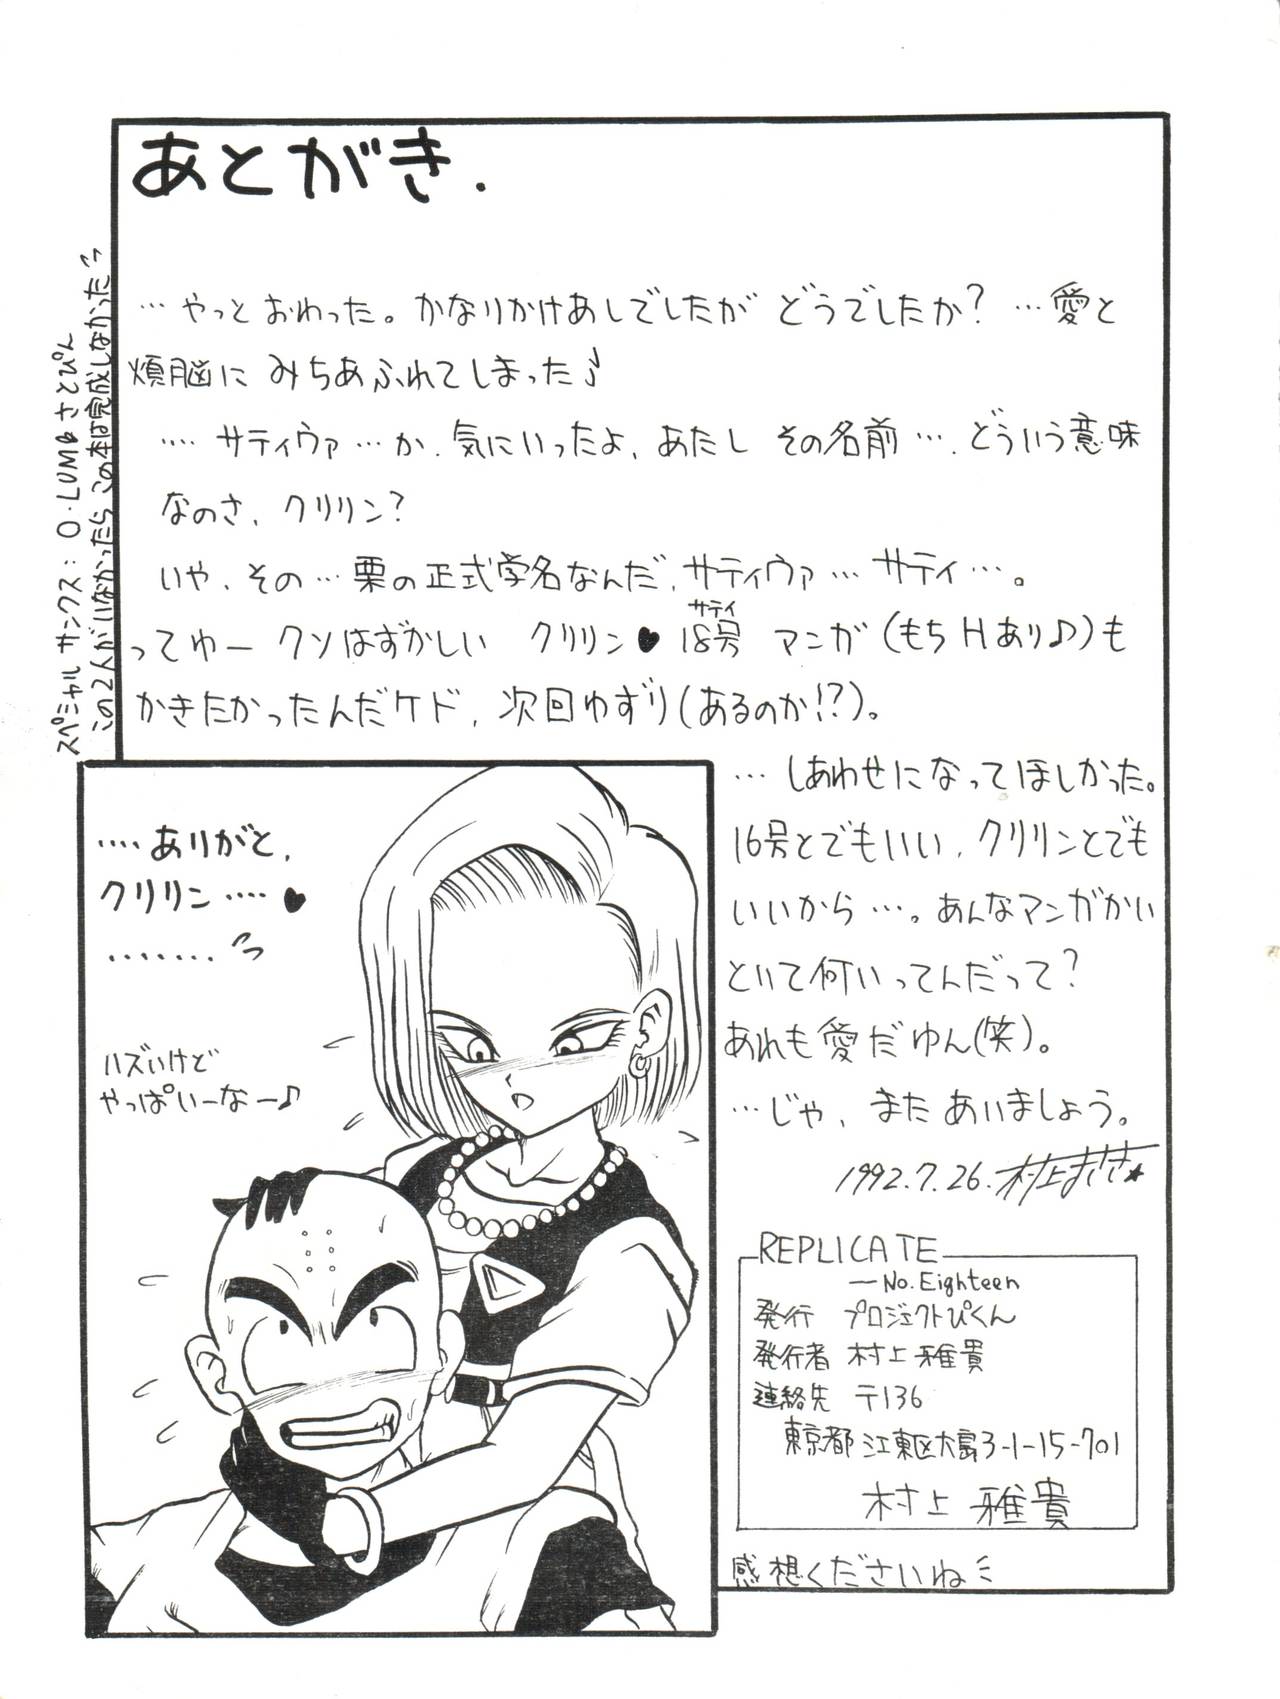 あとがき.
…やっとおわった。かなりかけあしでしたが どうでしたか? …愛と
煩脳に みちあふれてしまった♪
…. サティウァ …か. 気にいったよ, あたし その名前 …. どういう意味
なのさ, クリリン?
いや, その… 栗の正式学名なんだ, サティウァ… サティ…。
ってゆー クソはずかしい クリリン♥18号 マンガ(もちHあり♪)も
サティ
かきたかったんだケド, 次回ゆずり(あるのか!?)。
… しあわせになってほしかった。
16号とでもいい, クリリンとでも
いいから …。あんなマンガかい
といて何いってんだって?
あれも愛だゆん(笑)。
…じゃ, また あいましょう。
1992.7.26. 村上まさき★
スペシャル サンクス: O・LUM& さとぴん
この2人がいなかったら この本は完成しなかった
‥‥ありがと,
クリリン ‥‥ ♥
.......
ハズいけど
やっぱいーなー♪
REPLICATE
—No. Eighteen
発行 プロジェクトぴくん
発行者 村上 雅貴
連絡先 〒136
東京都 江東区大島3-1-15-701
村上 雅貴
感想くださいね